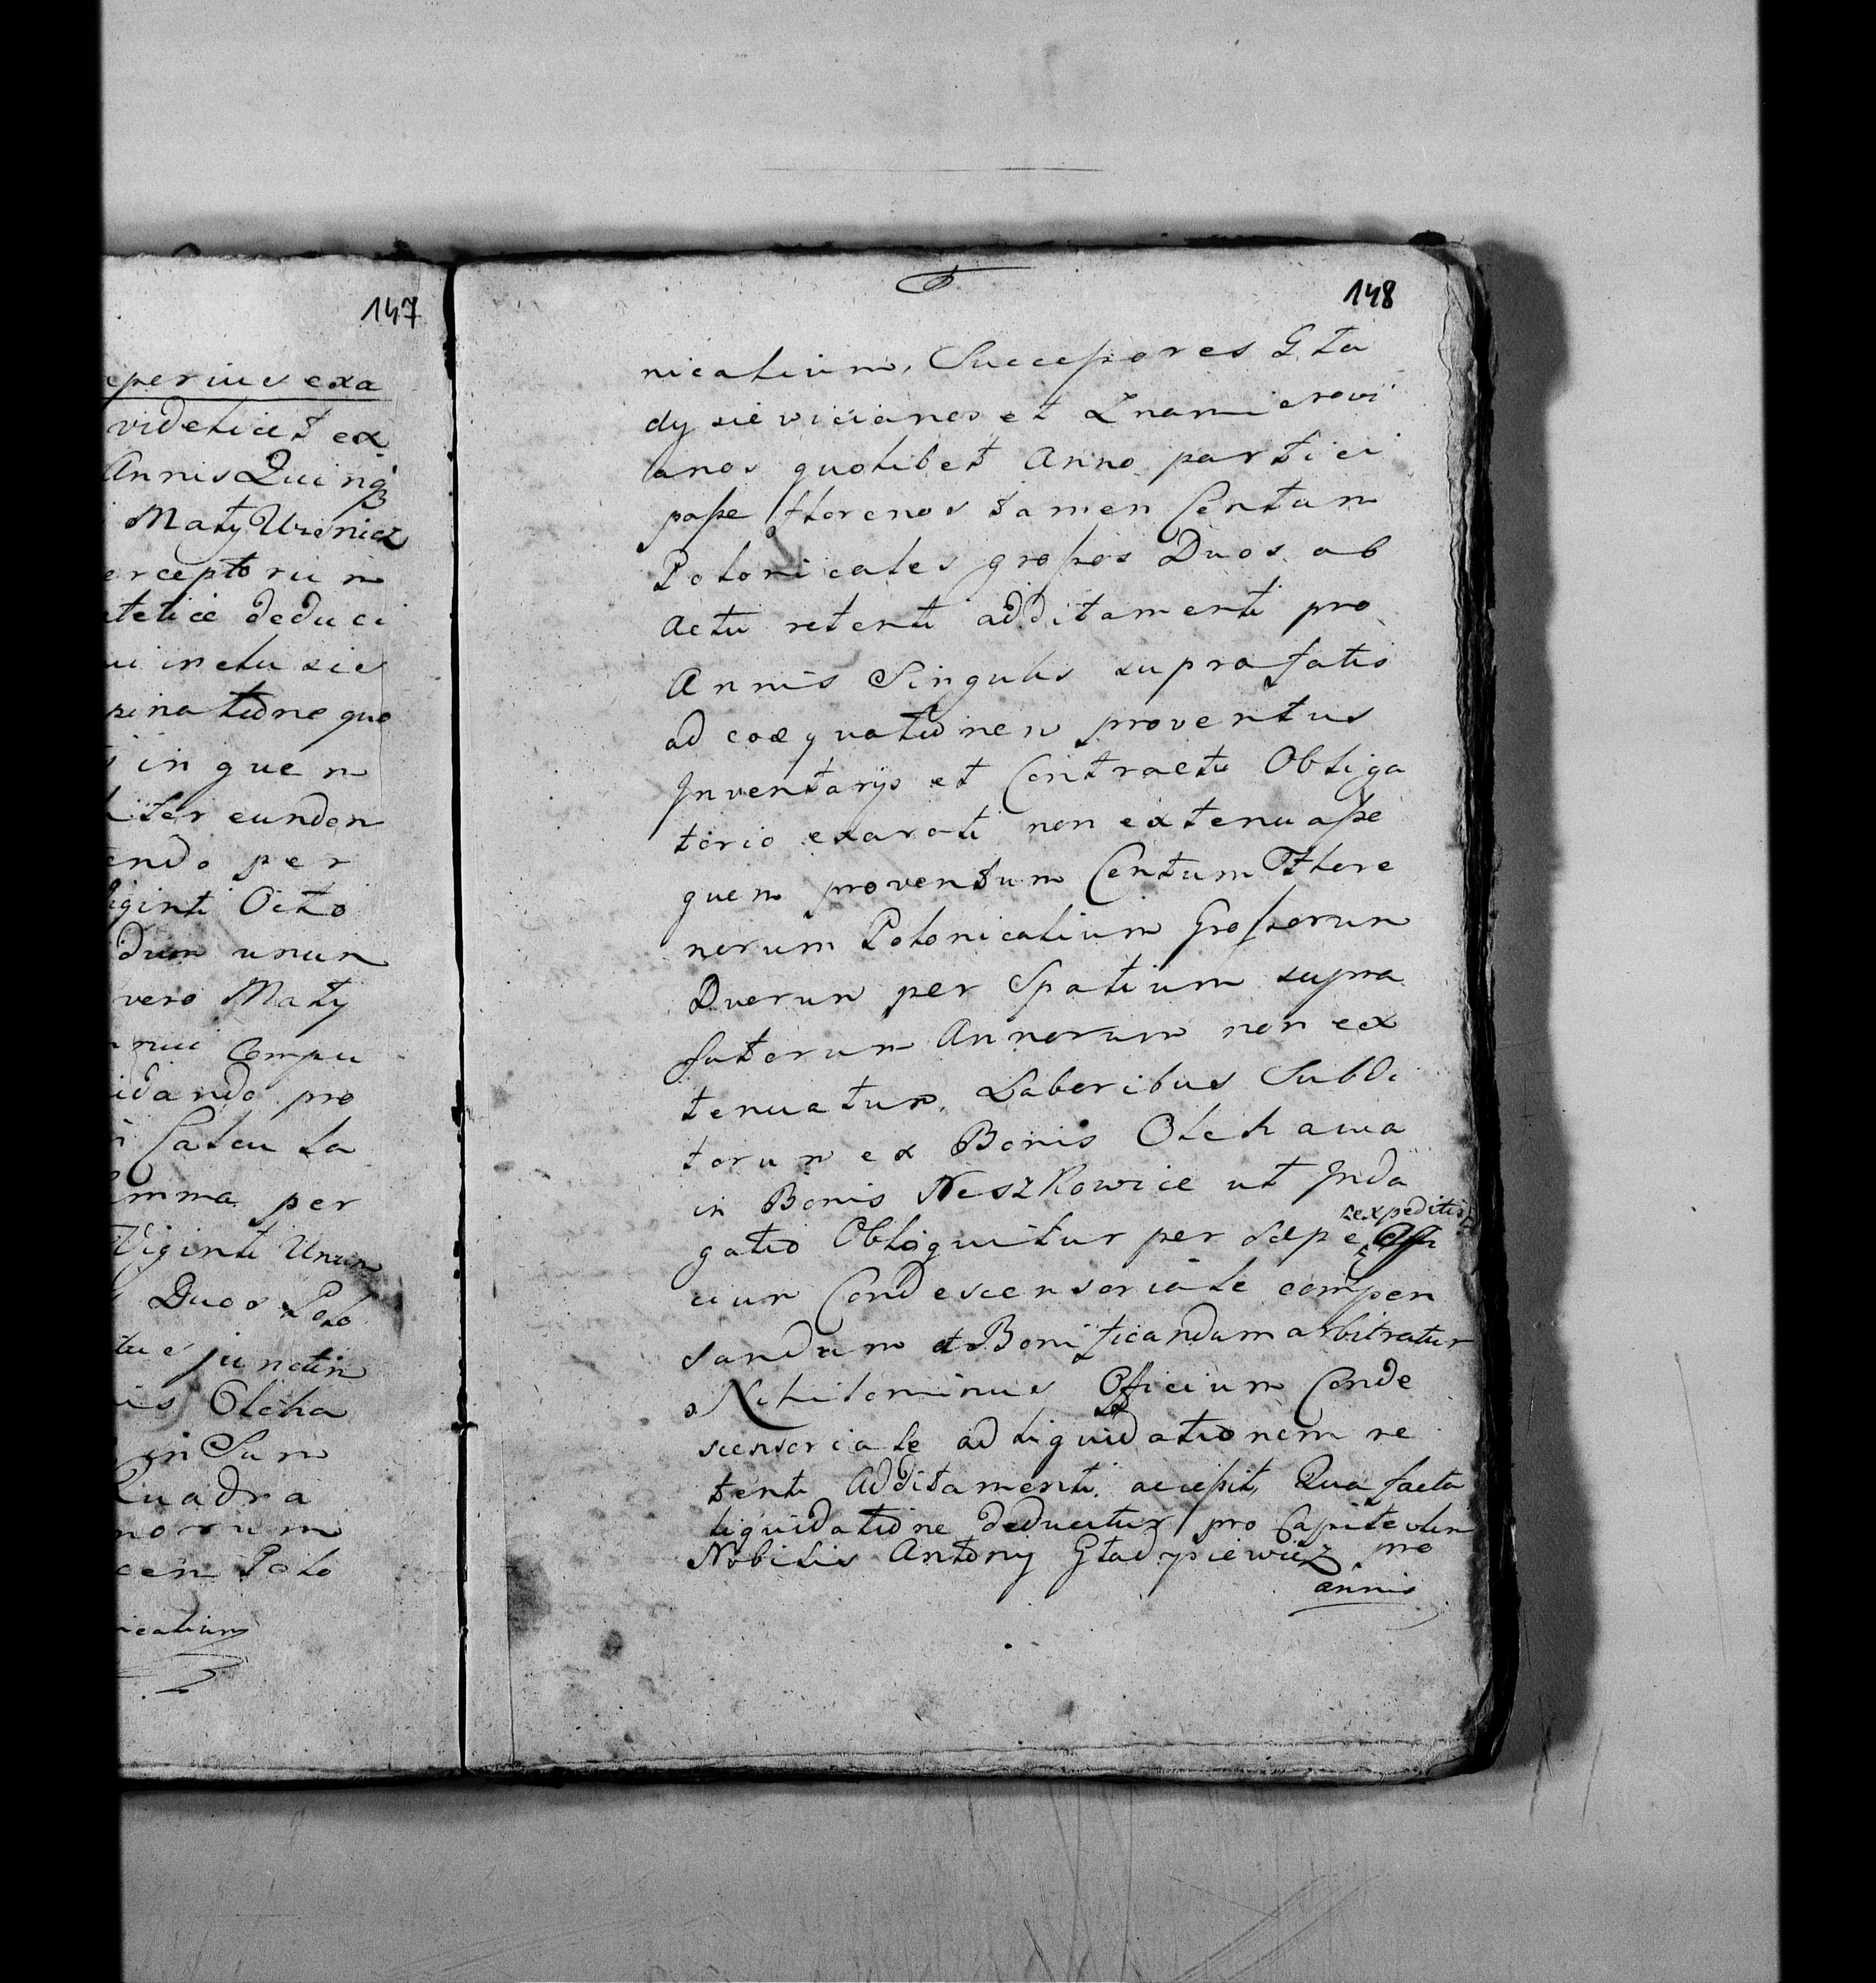 147
eperius exa
videlicet ex
Annis Quinq
Maty Uronicz
erceptorum
deduci
inclusive
zinatione quo
in quem
liter eundem
endo per
Viginti Octo
dum unum
vero Maty
nui Compu
idando pro
Calcula
per
Viginti Unum
Duos Polo
tus junctim
is Olcha
in Sum
Quadra
norum
cen Polo
nicalium
148
nicalium, Successores Gła
dysiewicianos et Znamierowi
anos quolibet Anno partici
passe florenos tamen Centum
Polonicales grossos Duos ab
Actu retenti additamenti pro
Annis Singulis suprafatis
ad coæquationem proventus
Inventarijs et Contractu Obliga
torio exarati non extenuasse
quem proventum Centum Flore
norum Polonicalium Grossorum
Duorum per Spatium supra
fatorum Annorum non ex
tenuatum, Laboribus Subdi
torum ex Bonis Olchawa
in Bonis Neszkowice ut Inda
gatio Obloquitur per sæpe expeditis Offi
cium Condescensoriale compen
sandum et Bonificandum arbitratur
Nihilominus Officium Conde
scensoriale ad liquidationem re
tenti Additamenti accessit, Qua facta
liquidatione deducitur pro Capite olim
Nobilis Antony Gładysiewicz pro
annis